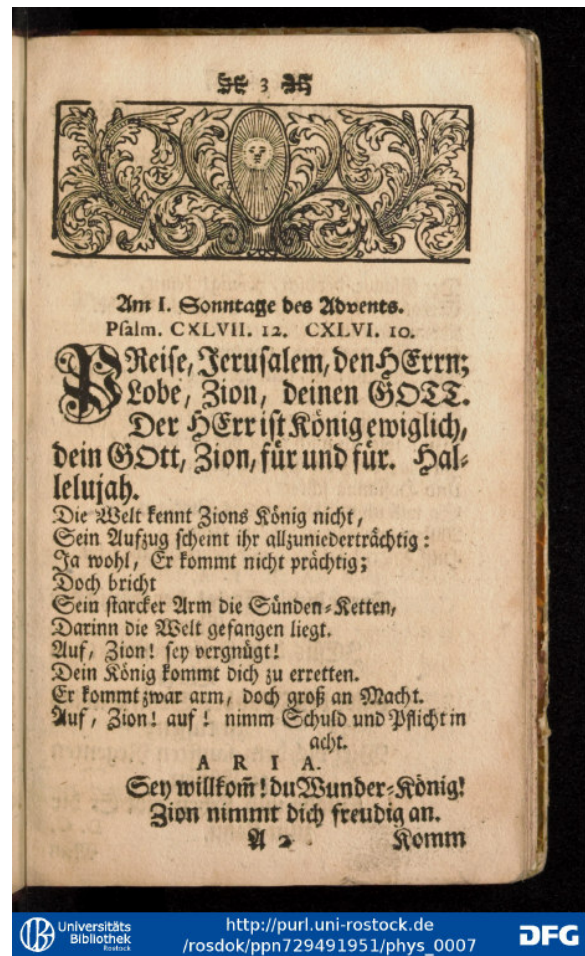 3
Am I. Sonntage des Advents.
Psalm. CXLVII. 12. CXLVI. 10.
PReise, Jerusalem, den HErrn;
Lobe, Zion, deinen GOTT.
Der HErr ist König ewiglich,
dein GOtt, Zion, für und für. Hal-
lelujah.
Die Welt kennt Zions König nicht,
Sein Aufzug scheint ihr allzuniederträchtig:
Ja wohl, Er kommt nicht prächtig;
Doch bricht
Sein starcker Arm die Sünden-Ketten,
Darinn die Welt gefangen liegt.
Auf, Zion! sey vergnügt!
Dein König kommt dich zu erretten.
Er kommt zwar arm, doch groß an Macht.
Auf, Zion! auf! nimm Schuld und Pflicht in
acht.
ARIA.
Sey willkom̃! du Wunder-König!
Zion nimmt dich freudig an.
A 2 Komm
Universitäts
Bibliothek
Rostock
http://purl.uni-rostock.de
/rosdok/ppn729491951/phys_0007
DFG